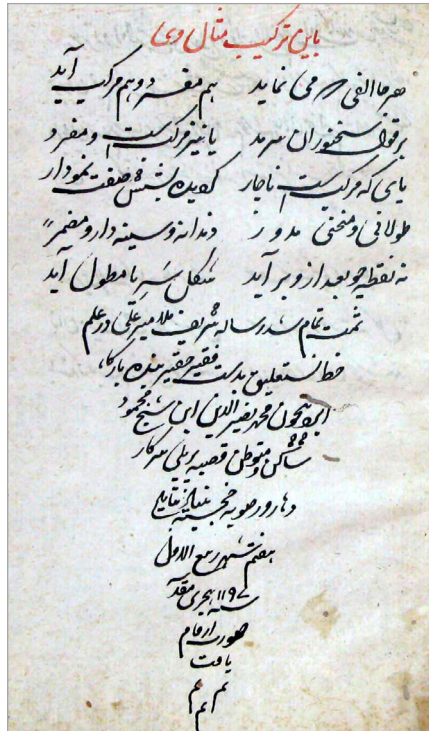 باین ترکیب مثال وی
هرجا الفی می نماید هم مفرد و هم مرکب آید
بر قول سخنوران سرمد یا نیز مرکبست و مفرد
یای که مرکبست ناچار گردیده بشش صفت نمودار
طولانی و منحنی مدور دندانه و سینه دار و مضمر
نه نقطه چو بعد ازو بر آید شکل سر یا مطول آید
تمت تمام شد رساله شریف ملا میر علی در علم
خط نستعلیق بدست فقیر حقیر بنده بارگاه
محمد نصیر الدین ابن شیخ محمود
ساکن و متوطن قصبه سرکار
دهارور صوبه خجسته بنیاد
هفتم شهر ربیع الاول
سنه ۱۱۹۷ هجری مقدسه
صورت ارقام
یافت
تم تم
تم